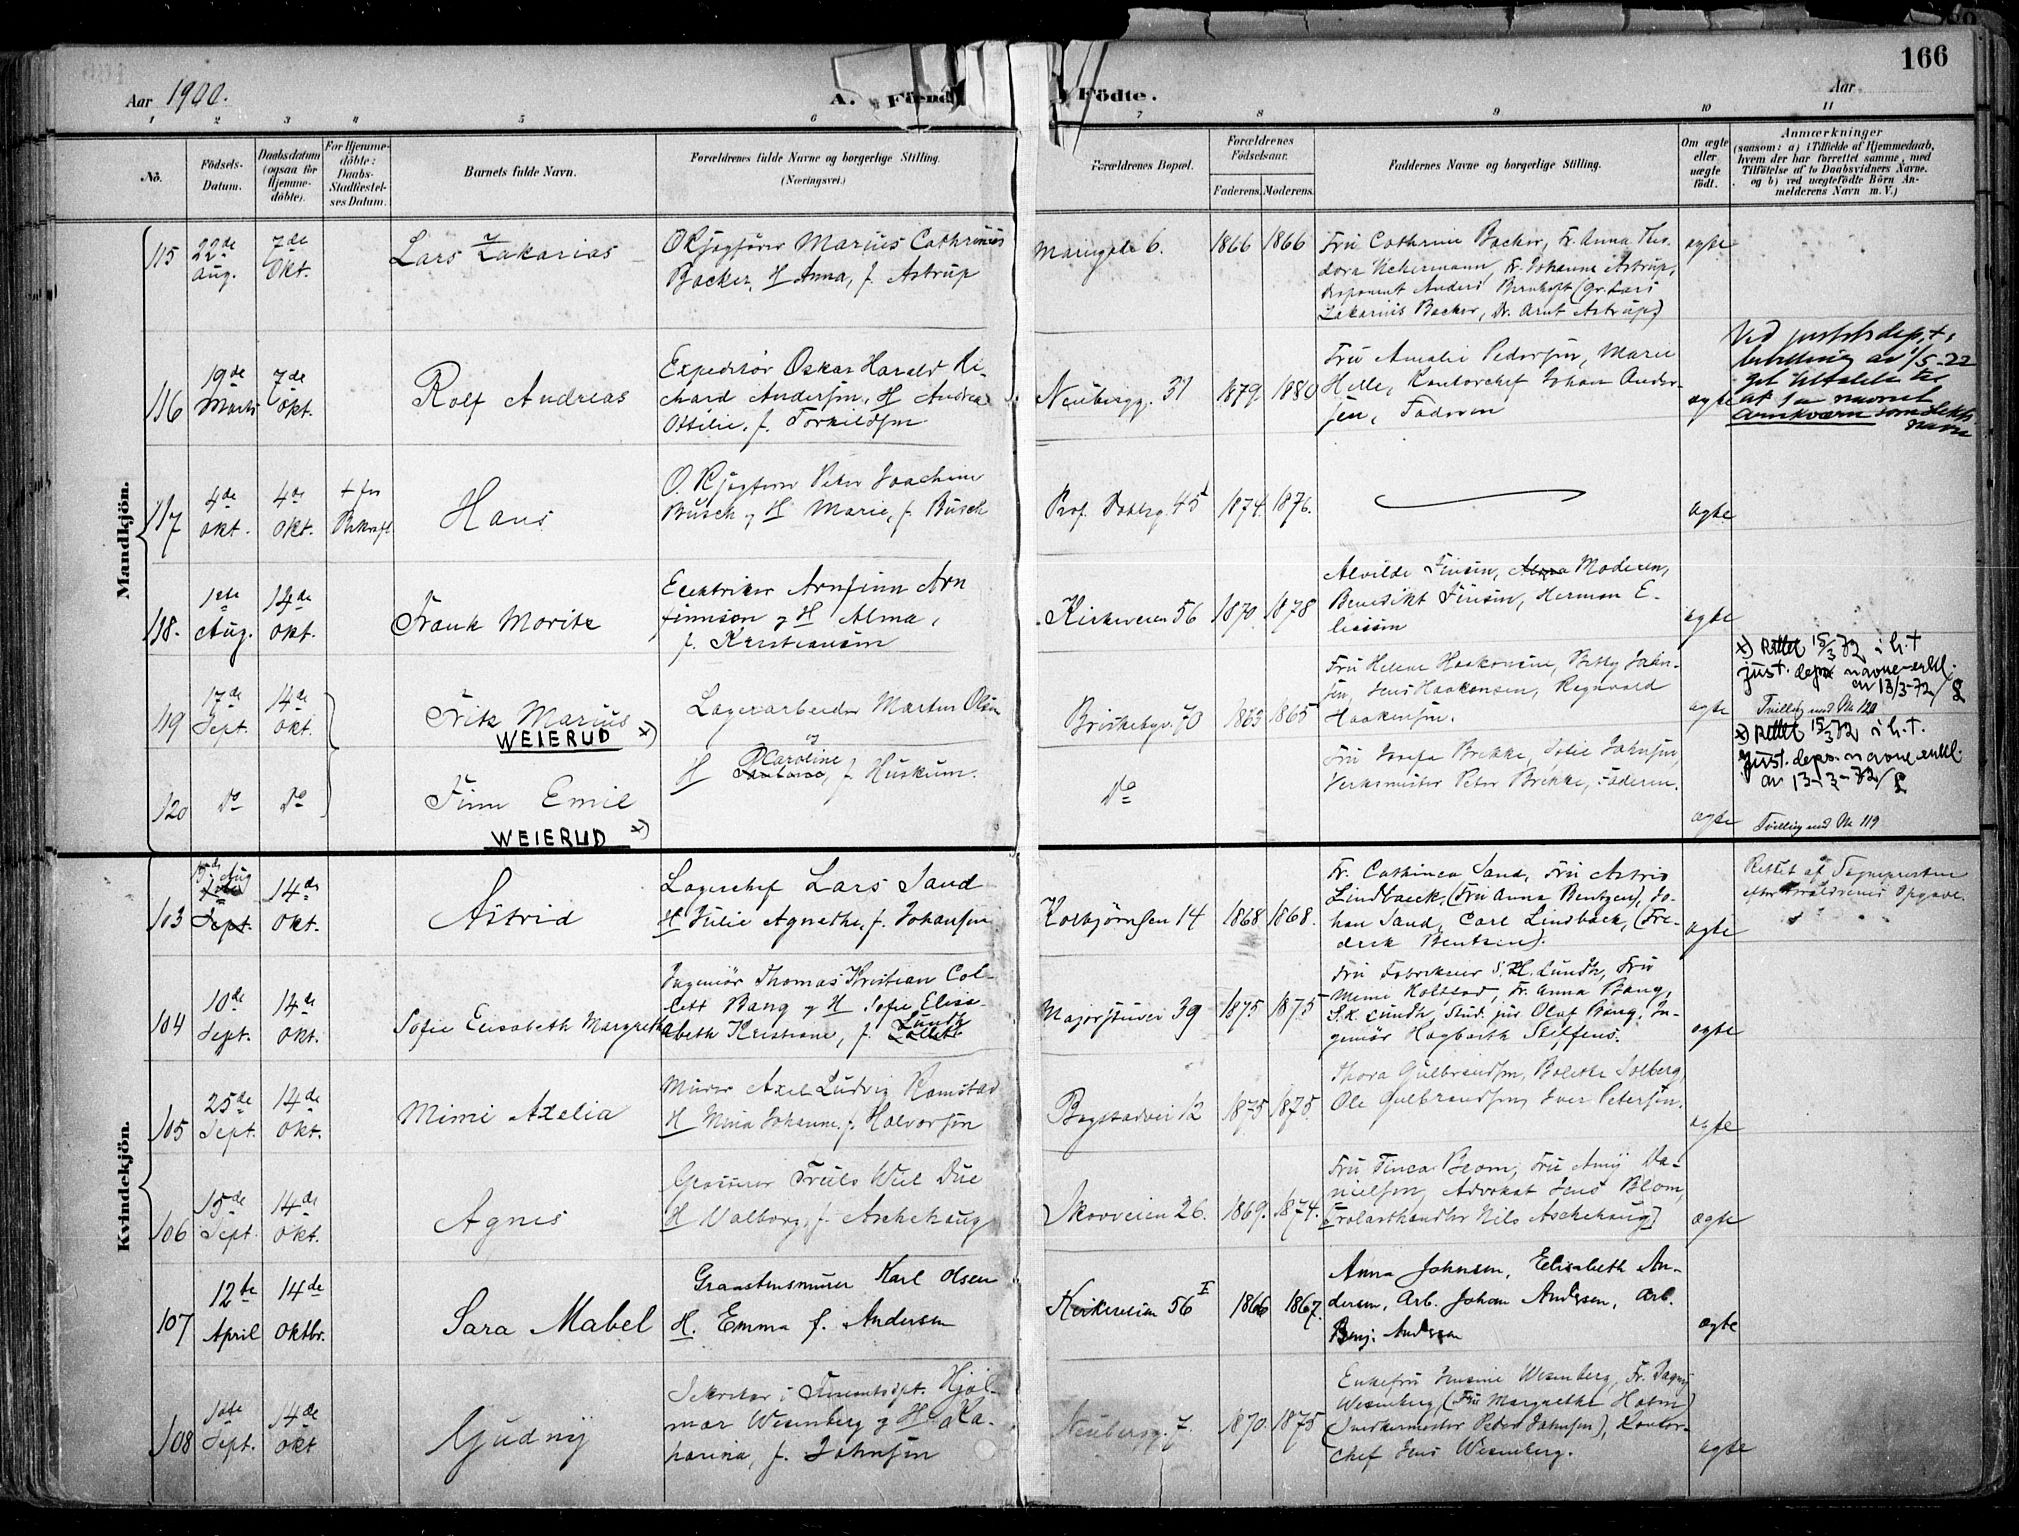 166
Aar 1900.
A. Föend
Födte.
Aar
1 2 3 4 5 6 7 8 9 10 11
No.
Födsels-Datum.
Daabsdatum (ogsaa for Hjemmedöbte).
For Hjemmedöbte: Daabs-Stadfæstelses Datum.
Barnets fulde Navn.
Forældrenes fulde Navne og borgerlige Stilling.
(Næringsvei.)
Forældrenes Bopæl.
Forældrenes Födselsaar.
Faderens. Moderens.
Faddernes Navne og borgerlige Stilling.
Om ægte eller uægte födt.
Anmærkninger
(saasom: a) i Tilfælde af Hjemmedaab,
hvem der har forrettet samme, med
Tilföielse af to Daabsvidners Navne.
og b) ved uægtefödte Börn Anmelderens Navn m. V.)
Mandkjön.
115 22de Aug. 7de Okt.
Lars Zakarias
Okjøgfører Marius Cathrinus
Backer, H Anna, f. Astrup
Mariegate 6. 1866 1866
Fru Cathrine Backer, Fr. Anna Theo-
dora Uchermann, Fr. Johanne Astrup,
Disponent Anders Bernhoft (Gr. Lars
Zakarias Backer, Dr. Arnt Astrup)
ægte
116 19de Marts 7de Okt.
Rolf Andreas
Expeditør Oskar Harald Ri-
chard Andersen, H Andrea
Ottilie, f. Torkildsen
Neubergg. 31 1879. 1880
Fru Amalie Pedersen, Marie
Helle, Kontorchef Johan Ander-
sen, Faderen
ægte
Ved justitsdept.s
bevilling av 1/5-22
git tilladelse til
at ta navnet
Arnkværn som slekts
navn
117 4de Okt. 4de Okt.
Hans
O. Kjøgfører Peter Joachim
Busch og H Marie, f. Busch
Prof. Dahlsg. 45 1874. 1876.
ægte
118. 1ste Aug. 14de Okt.
Frank Moritz
Elektriker Arnfinn Arn
finnsen og H Alma,
f. Kristiansen
Kirkeveien 56 1870. 1878
Alvilde Finsen, Moderen,
Benedikt Finsen, Herman E-
liassen
ægte
119 17de Sept. 14de Okt.
Fritz Marius
WEIERUD x)
Lagerarbeider Martin Olsen
og
H Karoline, f. Huskum.
Briskebyv. 70 1865 1865
Fru Helene Haakonsen, Betty Jahn-
sen, Jens Haakonsen, Ragnvald
Haakonsen.
ægte
x) Rettet 15/3 72 i h. t
just. deps navne-erkl.
av 13/3-72/
Tvilling med No 120
120 do do
Finn Emil
WEIERUD x)
do
Fru Josefa Brekke, Sofie Jahnsen,
Verksmester Peter Brekke, Faderen.
ægte
x) Rettet 15/3 72 i h. t.
just. deps. navne erkl
av 13-3-72/
Tvilling med No 119
Kvindekjön.
103 15de Aug Sept. 14de Okt.
Astrid
Lagerchef Lars Sand
H Julie Agnethe, f. Johansen
Kolbjørnsen 14 1868 1868.
Fr. Cathinca Sand, Fru Astrid
Lindbæck, (Fru Anna Bentzen), Jo-
han Sand, Carl Lindbæck, (Fre-
derik Bentzen).
ægte
Rettet af Sognepresten
efter Forældrenes Opgave.
104 10de Sept. 14de Okt.
Sofie Elisabeth Margrethe
Ingeniør Thomas Kristian Col-
lett Bang og H Sofie Elisa-
beth Kristiane, f. Lundh
Majorstuvei 39 1875 1875
Fru Fabrikeier S. H. Lundh, Fru
Mimi Holtsod, Fr. Anna Bang,
S. H. Lundh, Stud. jur Olaf Bang, In-
geniør Hagbarth Steffens.
ægte
105 25de Sept. 14de Okt.
Mimi Axelia
Murer Axel Ludvig Ramstad
H Mina Johanne, f. Halvorsen
Bogstadvei 12 1875 1875
Thora Gulbrandsen, Bolette Solberg,
Ole Gulbrandsen, Iver Petersen.
ægte
106 15de Sept. 14de Okt.
Agnes
Grosserer Truls Wiel Due
H Valborg, f. Aschehoug
Skovveien 26. 1869. 1874.
Fru Tinca Blom, Fru Amy Da-
nielsen, Advokat Jens Blom,
Trælasthandler Nils Aschehoug
ægte
107 12te April 14de Oktbr.
Sara Mabel
Graastensmurer Karl Olsen
H. Emma f. Andersen
Kirkeveien 56 I 1866 1867.
Anna Johnsen, Elisabeth An-
dersen, Arb. Johan Andersen, Arb.
Benj. Andersen
ægte
108 Sept. 14de Okt
Gudny
Sekretær i Finantsdpt. Hjal-
mar Wesenberg og H Ka-
tharina, f. Jahnsen
Neubergg. 7. 1870. 1875
Enkefru Susine Wesenberg, Fr. Dagny
Wesenberg (Fru Margrethe Holm)
Snedkermester Peder Jahnsen), Kontor-
chef Jens Wesenberg.
ægte